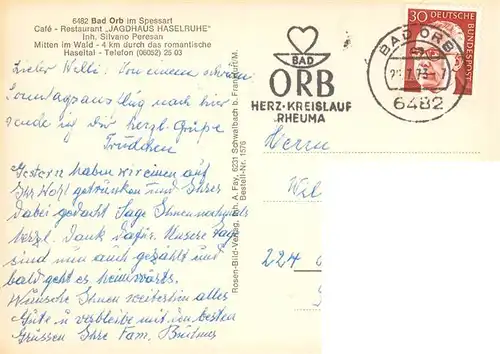 6482 Bad Orb im Spessart
Café - Restaurant "JAGDHAUS HASELRUHE"
Inh. Silvano Peresan
Mitten im Wald - 4 km durch das romantische
Haseltal - Telefon (06052) 25 03
Lieber Willi! Von einem schönen
Sonntagsausflug nach hier
sende ich Dir herzl. Grüße
Trudchen
Gestern haben wir einen auf
Ihr Wohl getrunken und Ihres
dabei gedacht Sage Ihnen nochmals
herzl. Dank dafür. Unsere Tage
sind nun auch gezählt und
bald geht es heimwärts.
Wünsche Ihnen weiterhin alles
Gute u verbleibe mit den besten
Grüssen Ihre Fam.
Rosen-Bild-Verlag, Inh. A. Fay, 6231 Schwalbach b. Frankfurt/M.
Bestell-Nr. 1576
BAD
ORB
HERZ·KREISLAUF
RHEUMA
BAD ORB
6482
30
DEUTSCHE
BUNDESPOST
Herrn
Wil
224